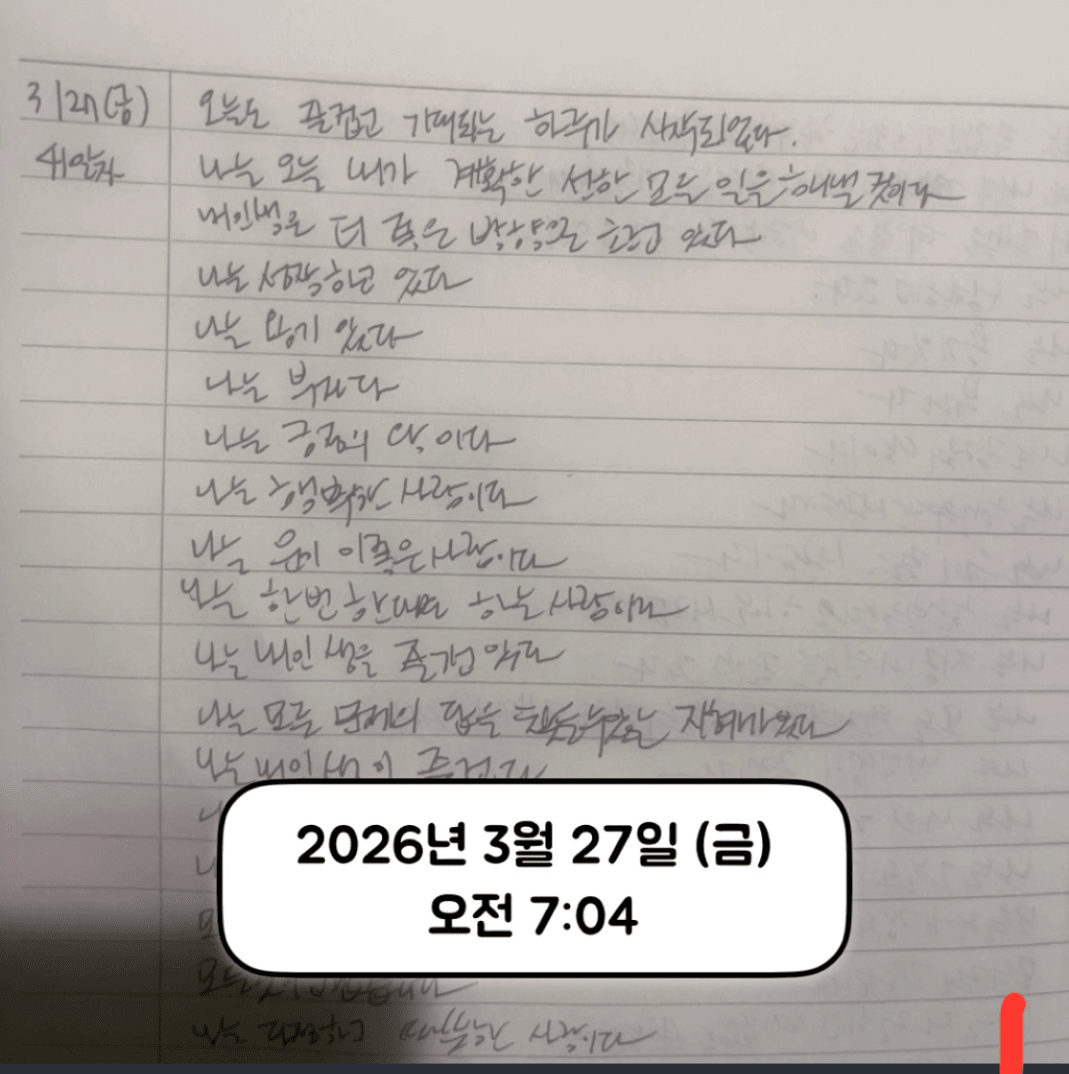 3/27(금) 오늘도 즐겁고 기대되는 하루가 시작되었다.
4일차 나는 오늘 내가 계획한 선한 모든 일을 해낼 것이다
내인생은 더 좋은 방향으로 흐르고 있다
나는 성장하고 있다
나는 용기 있다
나는 부자다
나는 긍정의 이다
나는 행복한 사람이다
나는 운이 좋은 사람이다
나는 한번 한다면 하는 사람이다
나는 내 인생을 즐기고 있다
나는 모든 문제의 답을 찾을수있는 지혜가 있다
나는 내 인생이 즐겁다
2026년 3월 27일 (금)
오전 7:04
나는 다정하고 따뜻한 사람이다